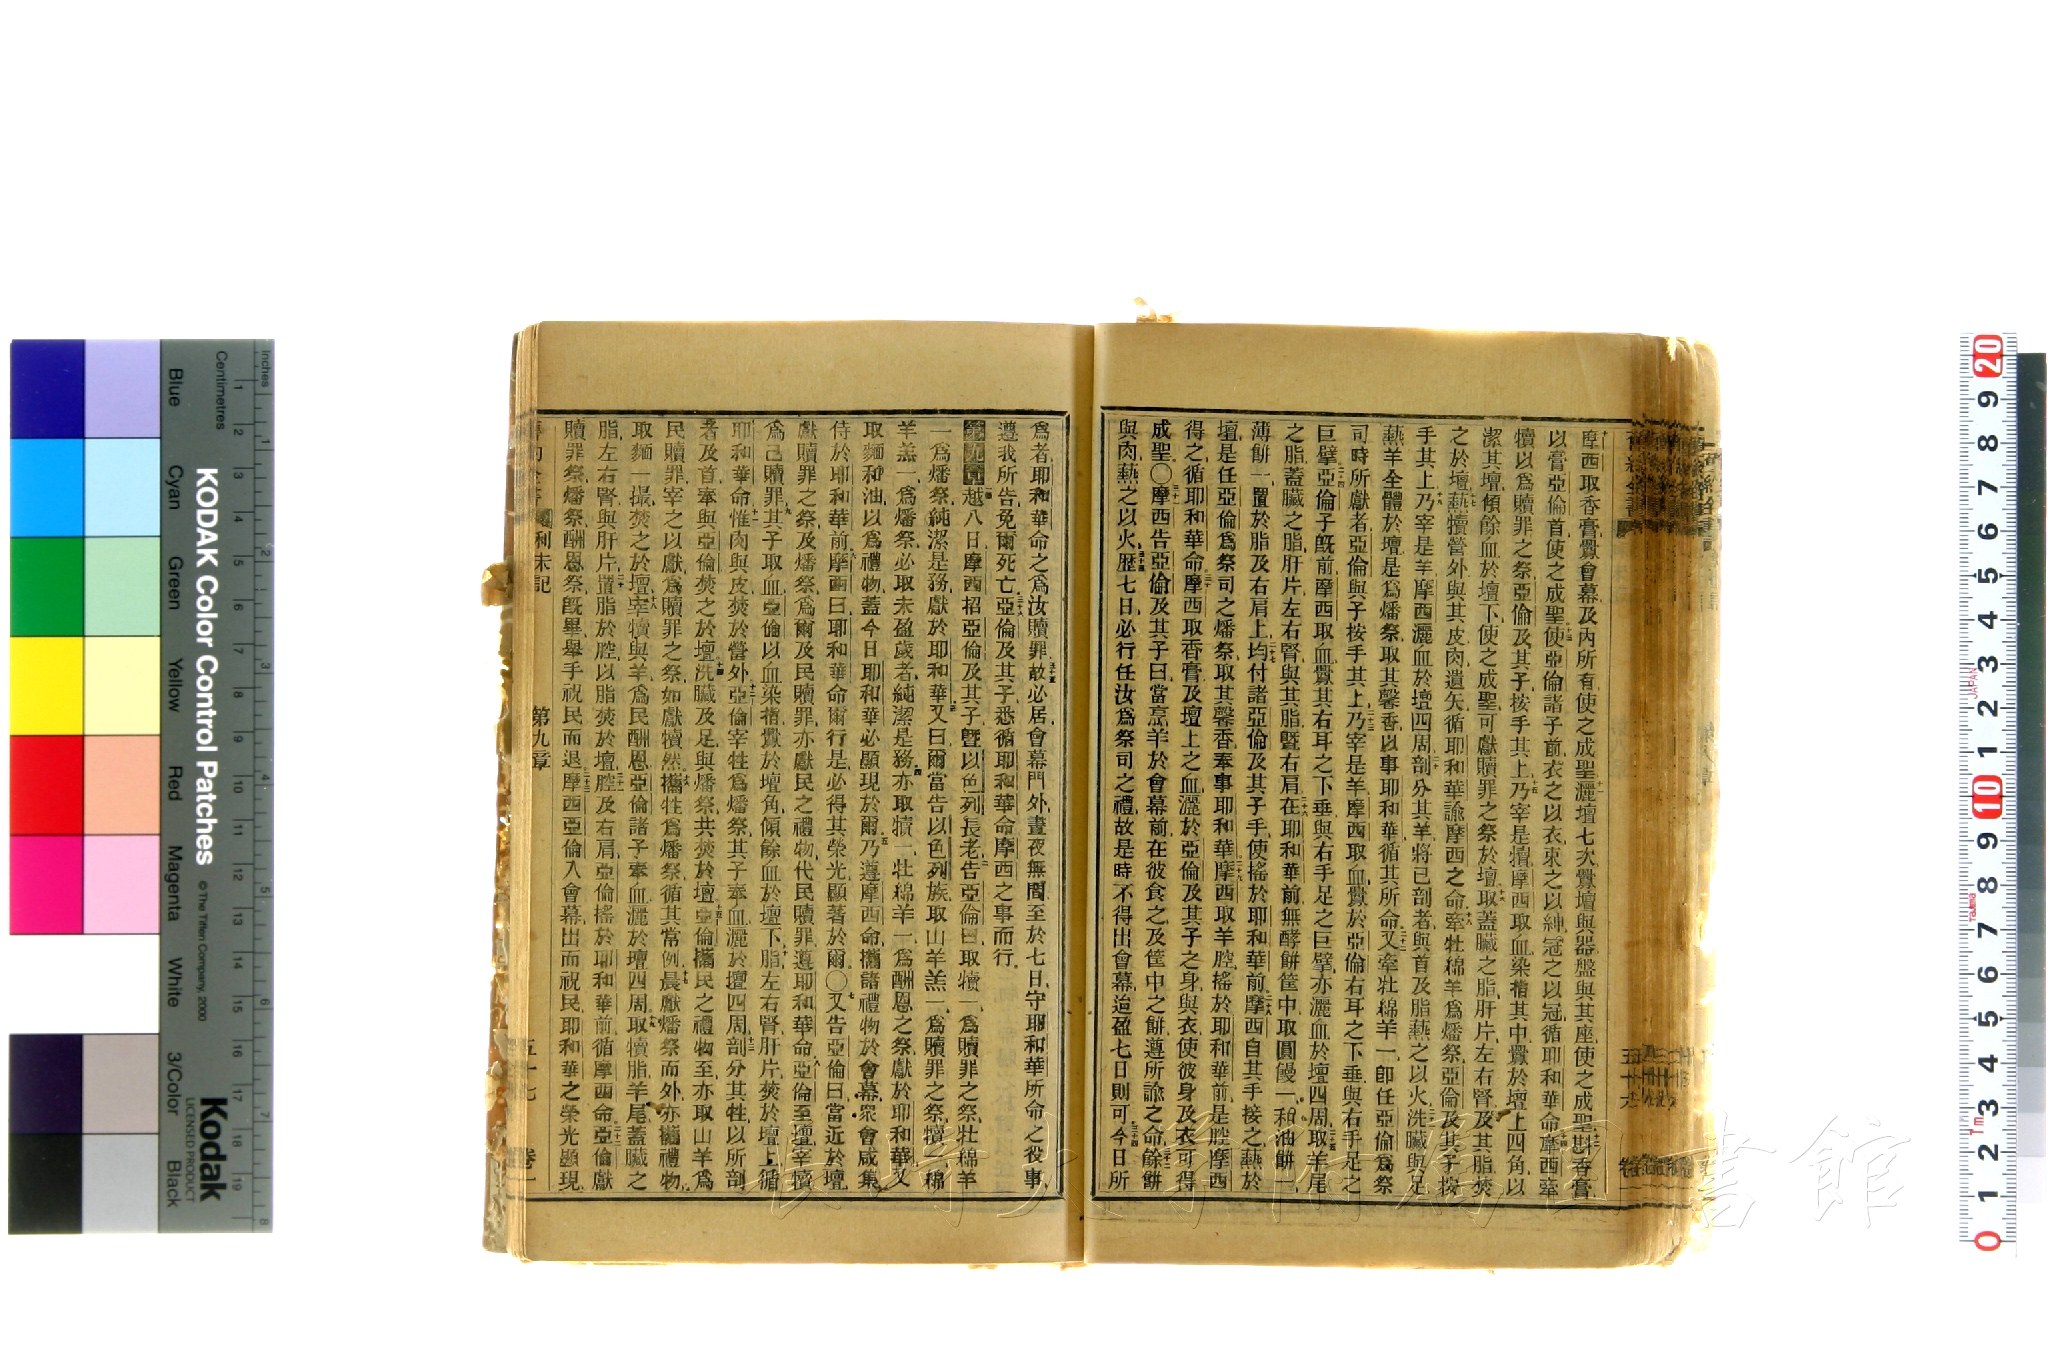 摩西取香膏釁會幕及內所有使之成聖灑壇七次釁壇與器盤與其座使之成聖斟香膏
以膏亞倫首使之成聖使亞倫諸子前衣之以衣束之以紳冠之以冠循耶和華命摩西牽
犢以爲贖罪之祭亞倫及其子按手其上乃宰是犢摩西取血染指其中釁於壇上四角以
潔其壇傾餘血於壇下使之成聖可獻贖罪之祭於壇取蓋臟之脂肝片左右腎及其脂焚
之於壇爇犢營外與其皮肉遺矢循耶和華諭摩西之命牽牡綿羊爲燔祭亞倫及其子按
手其上乃宰是羊摩西灑血於壇四周剖分其羊將已剖者與首及脂爇之以火洗臟與足
爇羊全體於壇是爲燔祭取其馨香以事耶和華循其所命又牽牡綿羊一卽任亞倫爲祭
司時所獻者亞倫與子按手其上乃宰是羊摩西取血釁於亞倫右耳之下垂與右手足之
巨擘亞倫子旣前摩西取血釁其右耳之下垂與右手足之巨擘亦灑血於壇四周取羊尾
之脂蓋臟之脂肝片左右腎與其脂曁右肩在耶和華前無酵餅筐中取圓饅一和油餅一
薄餅一置於脂及右肩上均付諸亞倫及其子手使搖於耶和華前摩西自其手接之爇於
壇是任亞倫爲祭司之燔祭取其馨香奉事耶和華摩西取羊腔搖於耶和華前是腔摩西
得之循耶和華命摩西取香膏及壇上之血灑於亞倫及其子之身與衣使彼身及衣可得
成聖〇摩西告亞倫及其子曰當烹羊於會幕前在彼食之及筐中之餅遵所諭之命餘餅
與肉爇之以火歷七日必行任汝爲祭司之禮故是時不得出會幕迨盈七日則可今日所
爲者耶和華命之爲汝贖罪故必居會幕門外晝夜無間至於七日守耶和華所命之役事
遵我所告免爾死亡亞倫及其子悉循耶和華命摩西之事而行
第九章 越八日摩西招亞倫及其子曁以色列長老告亞倫曰取犢一爲贖罪之祭牡綿羊
一爲燔祭純潔是務獻於耶和華又曰爾當告以色列族取山羊羔一爲贖罪之祭犢一綿
羊羔一爲燔祭必取未盈歲者純潔是務亦取犢一牡綿羊一爲酬恩之祭獻於耶和華又
取麵和油以爲禮物蓋今日耶和華必顯現於爾乃遵摩西命攜諸禮物於會幕衆會咸集
侍於耶和華前摩西曰耶和華命爾行是必得其榮光顯著於爾〇又告亞倫曰當近於壇
獻贖罪之祭及燔祭爲爾及民贖罪亦獻民之禮物代民贖罪遵耶和華命亞倫至壇宰犢
爲己贖罪其子取血亞倫以血染指釁於壇角傾餘血於壇下脂左右腎肝片焚於壇上循
耶和華命惟肉與皮焚於營外亞倫宰牲爲燔祭其子奉血灑於壇四周剖分其牲以所剖
者及首奉與亞倫焚之於壇洗臟及足與燔祭共焚於壇亞倫攜民之禮物至亦取山羊爲
民贖罪宰之以獻爲贖罪之祭如獻犢然攜牲爲燔祭循其常例晨獻燔祭而外亦攜禮物
取麵一撮焚之於壇宰犢與羊爲民酬恩亞倫諸子奉血灑於壇四周取犢脂羊尾蓋臟之
脂左右腎與肝片置脂於腔以脂焚於壇腔及右肩亞倫搖於耶和華前循摩西命亞倫獻
贖罪祭燔祭酬恩祭旣畢舉手祝民而退摩西亞倫入會幕出而祝民耶和華之榮光顯現
利未記 第九章 五十七 卷一
長崎大學附屬圖書館
KODAK Color Control Patches
© The Tiffen Company, 2000
Kodak
LICENSED PRODUCT
Inches
Centimetres
Blue Cyan Green Yellow Red Magenta White 3/Color Black
JAPAN